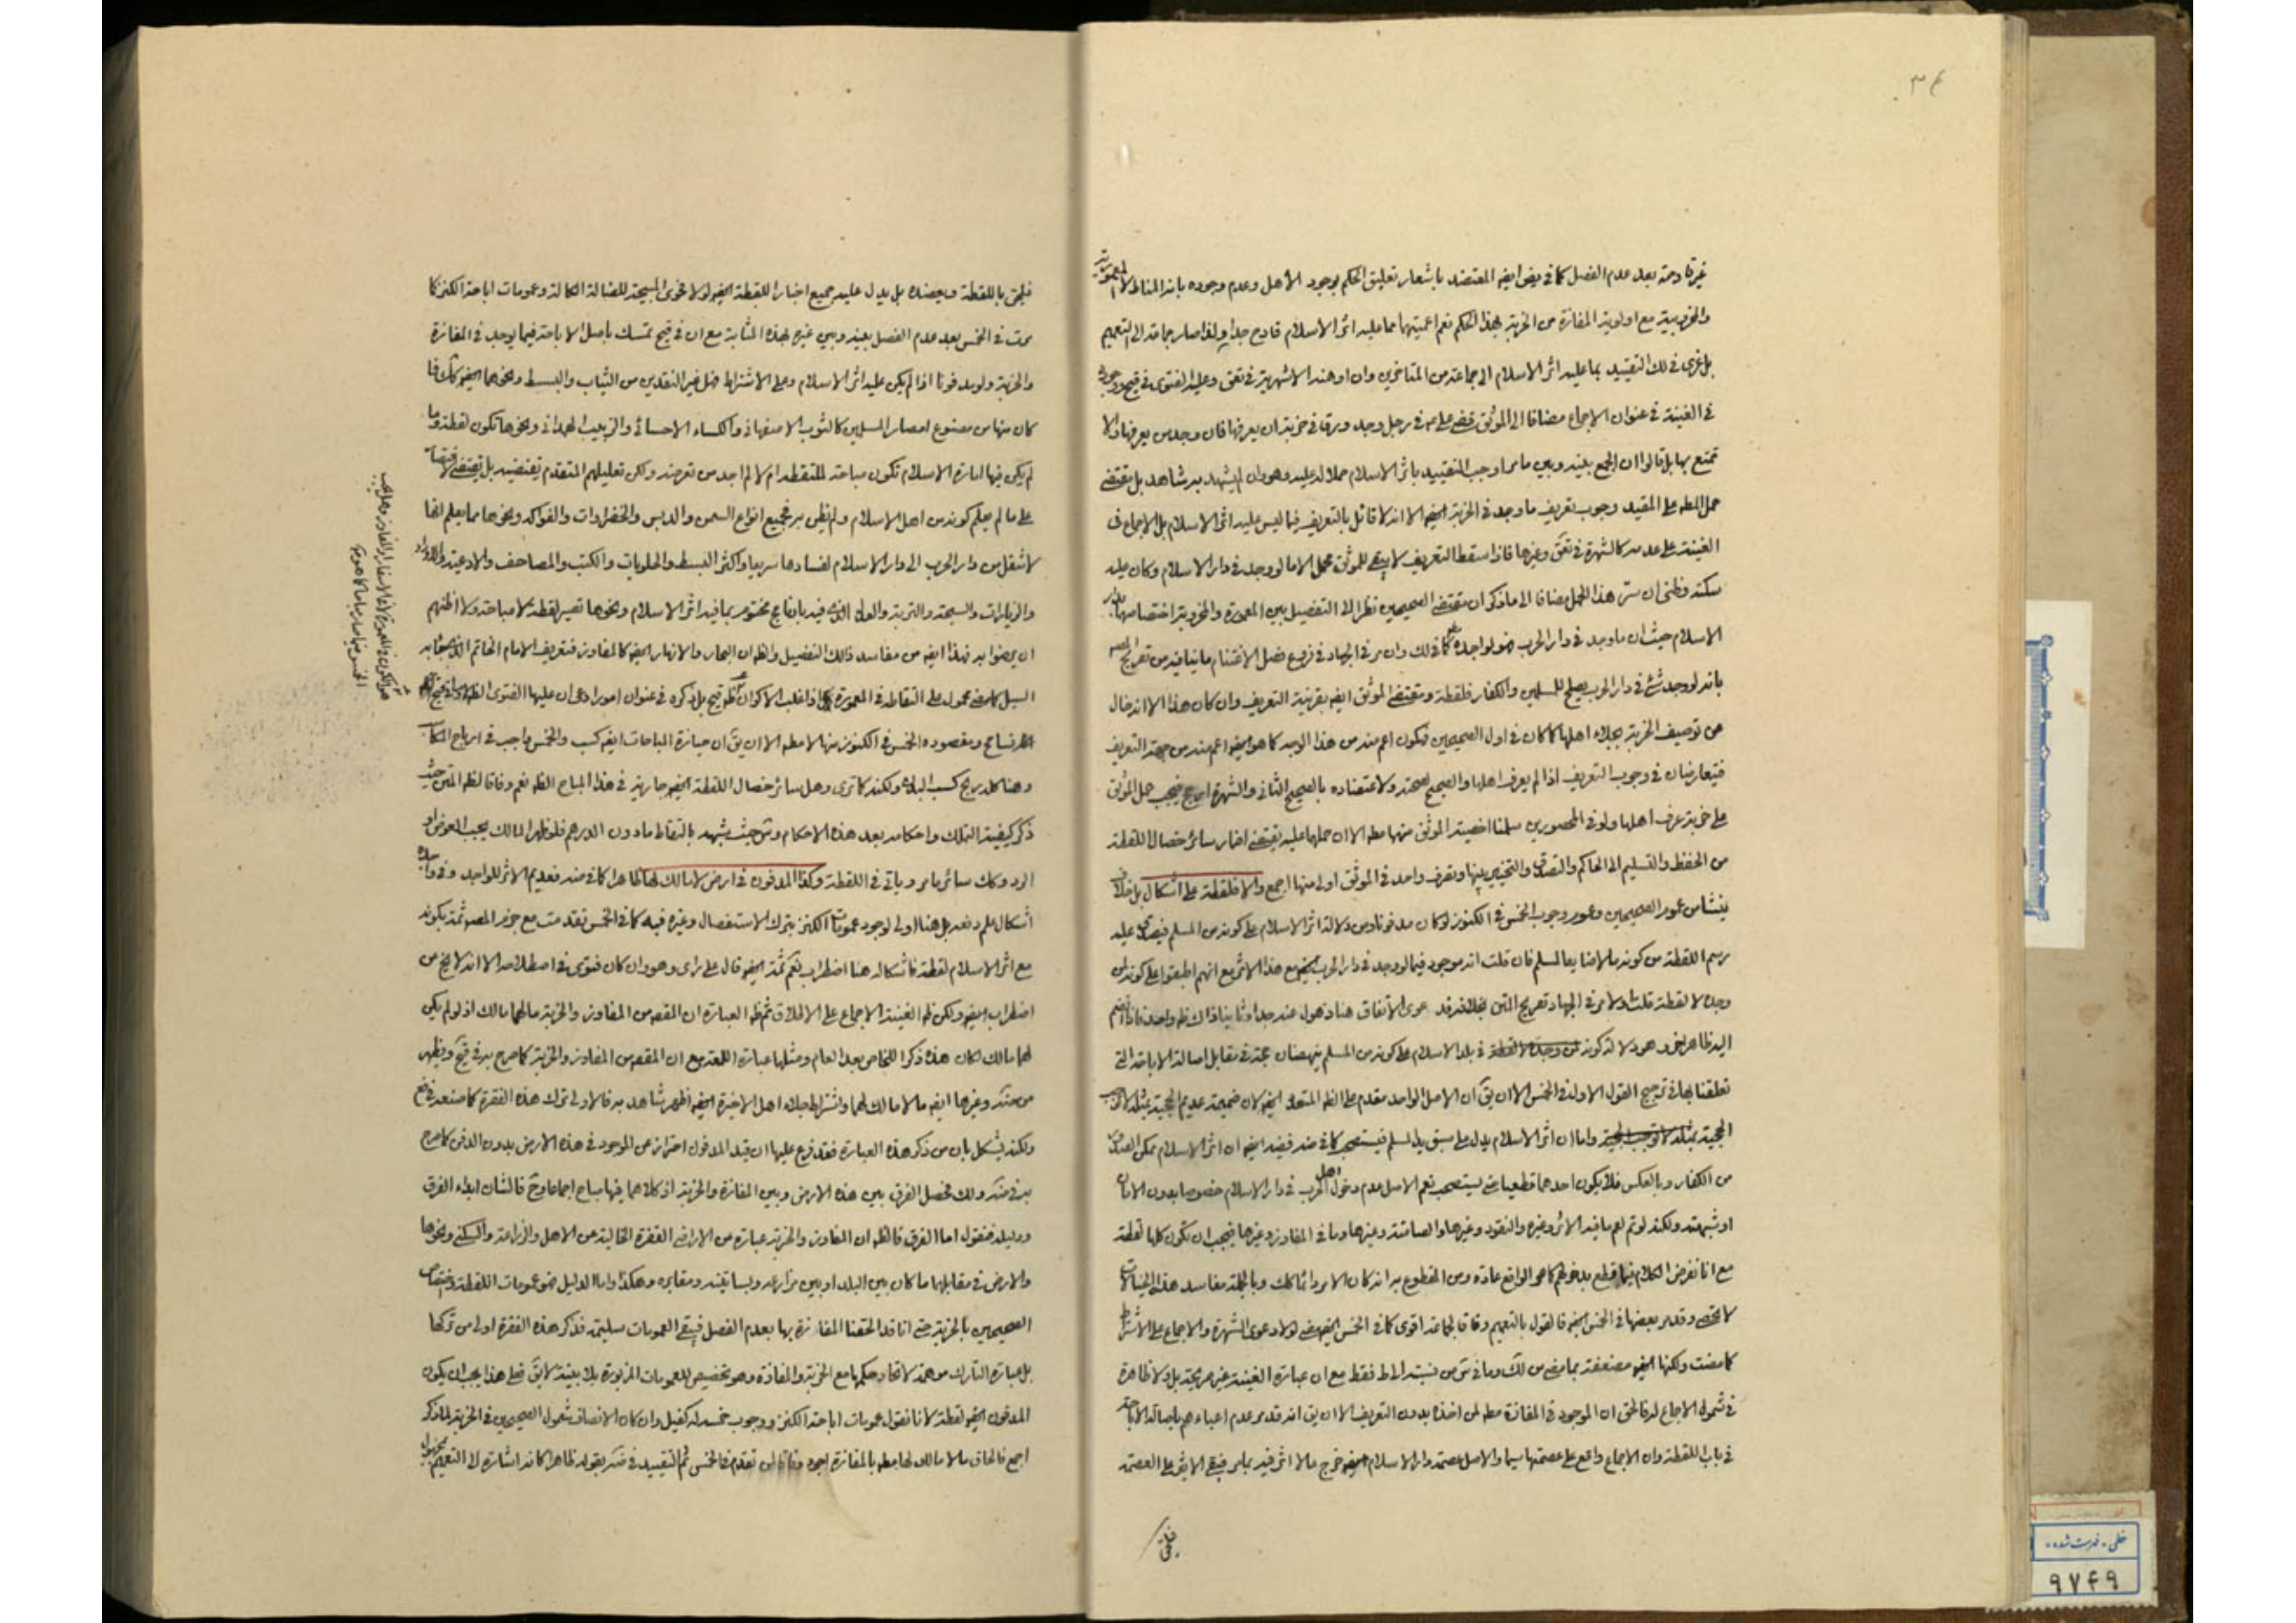 ٣٤
غير قادحة بعد عدم الفصل كما في يض ايضا المعتضد باشعار تعليق الحكم بوجود الأهل وعدم وجوده بانه المناط لا المعمورية
والخروبية مع اولوية المفازة من الخربة بهذا الحكم نعم اعميتهما مما عليه اثر الاسلام قادح جدا ولذا صار جماعة الى التعميم
بل عزى في لك التقييد بما عليه اثر الاسلام الى جماعة من المتاخرين وان او هنه الاشهرية في تعق وعليه الفتوى في قيح
في الغينة في عنوان الاجماع مضافا الى الموثق قضى علي ع في رجل وجد ورقا في خربة ان يعرفها فان وجد من يعرفها والا
تمتع بها بل قالوا ان الجمع بينه وبين ما مر اوجب التقييد باثر الاسلام حملا له عليه وهو وان لم يشهد به شاهد بل مقتضى
حمل المطلق على المقيد وجوب تعريف ما وجد في الخربة ايضا الا انه لا قائل بالتعريف فيما ليس عليه اثر الاسلام بل الاجماع في
الغينة على عدمه كالشهرة في تعق وغيرها فاذا سقط التعريف لا يبقى للموثق محمل الا ما لو وجد في دار الاسلام وكان عليه
سكته وظني ان سر هذا الحمل مضافا الى ما ذكر ان مقتضى الصحيحين نظرا الى التفصيل بين المعمورة والخروبة اختصاصهما بدار
الاسلام حيث ان ما وجد في دار الحرب فهو لواجده كما في لك وان مر في الجهاد في فروع فصل الاغتنام ما ينافيه من تصريح
بانه لو وجد شئ في دار الحرب يصلح للمسلمين والكفار فلقطة ومقتضى الموثق ايضا بقرينة التعريف وان كان هذا الا انه خال
عن توصيف الخربة بجلاء اهلها كما كان في اول الصحيحين فيكون اعم منه من هذا الوجه كما هو ايضا اعم منه من جهة التعريف
فيتعارضان في وجوب التعريف اذا لم يعرف اهلها والصحيح لصحته ولاعتضاده بالصحيح الثاني والشهرة ارجح فيجب حمل الموثق
على خربة عرف اهلها ولو في المحصورين سلمنا اخصية الموثق منهما مطلقا الا ان حملها عليه يقتضي اضمار سائر خصال اللقطة
من الحفظ والتسليم الى الحاكم والتصدق والتخيير بينها وتصرف واحد في الموثق اولى منها اجمع والا فلقطة على اشكال بل خلاف
ينشا من عموم الصحيحين وعموم وجوب الخمس في الكنوز لو كان مدفونا ومن دلالة اثر الاسلام على كونه من المسلم فيصدق عليه
رسم اللقطة من كونه مالا ضايعا لمسلم فان قلت انه موجود فيما لو وجد في دار الحرب ايضا مع هذا الاثر مع انهم اطبقوا على كونه لمن
وجده لا لقطة قلت
اليه ظاهر اخر وهو دلالة كونه في بلد الاسلام على كونه من المسلم ينهضان حجة في مقابل اصالة الاباحة التي
تعلقنا بها في ترجيح القول الاول في الخمس الا ان يق ان الاصل الواحد مقدم على الظاهر المتعدد ايضا لان ضميمة عديم الحجية بمثله لا توجب
الحجية واما ان اثر الاسلام يدل على سبق يد المسلم فيستصحب كما في ضد ففيه ايضا ان اثر الاسلام يمكن الصدور
من الكفار وبالعكس فلا يكون احدهما قطعيا حتى يستصحب نعم الاصل عدم دخول اهل الحرب في دار الاسلام خصوصا بدون الامان
او شبهته ولكنه لو تم لعم ما فيه الاثر وغيره والنقود وغيرها والصامتة وغيرها وما في المفاوز وغيرها فيجب ان تكون كلها لقطة
مع انا نفرض الكلام فيما قطع بدخولهم كما هو الواقع عادة ومن المقطوع به انه كان الامر دائما كك وبالجملة مفاسد هذه الخيالات
لا تحصى وقد مر بعضها في الخمس ايضا فالقول بالتعميم وفاقا لجماعة اقوى كما في الخمس ايضا لولا دعوى الشهرة والاجماع على الاشتراط
كما مضت ولكنها ايضا مضعفة بما مضى من لك وما في ش من نسبته الى ط فقط مع ان عبارة الغينة غير صريحة بل ولا ظاهرة
في شمول الاجماع له فالحق ان الموجود في المفازة مطلقا لمن اخذه بدون التعريف الا ان يق انه قد مر عدم اعباءهم باصالة الاباحة
في باب اللقطة وان الاجماع واقع على عصمتها سيما والاصل عصمة دار الاسلام ايضا خرج ما لا اثر فيه بما مر فبقي الاثر على العصمة
فيلحق
فيلحق باللقطة ويعضده بل يدل عليه جميع اخبار اللقطة ايضا لولا فحوى المبيحة للضالة الكالة وعمومات اباحة الكنز كما
مرت في الخمس بعد عدم الفصل بينه وبين غيره بهذه المثابة مع ان في قيح تمسك باصل الاباحة فيما يوجد في المفازة
والخربة ولو مدفونا اذا لم يكن عليه اثر الاسلام وعلى الاشتراط فهل غير النقدين من الثياب والبسط ونحوهما ايضا كك فما
كان منها من مصنوع امصار المسلمين كالثوب الاصفهاني والكساء الاحسائي والزبيب الهمداني ونحوها تكون لقطة وما
لم يكن فيها امارة الاسلام تكون مباحة للملتقط ام لا لم اجد من تعرضه ولكن تعليلهم المتقدم يقتضيه بل يقتضي
على ما لم يعلم كونه من اهل الاسلام ولم يظن به فجميع انواع السمن والدبس والخضراوات والفواكه ونحوها مما يعلم انها
لا تنقل من دار الحرب الى دار الاسلام لفسادها سريعا واكثر البسط والحلويات والكتب والمصاحف والادعية والاوراد
والزيارات والسبحة والتربة والعدل الذي فيه بان فاع مختوم بما فيه اثر الاسلام ونحوها تصير لقطة لا مباحة ولا اظنهم
ان يرضوا به فهذا ايضا من مفاسد ذلك التفصيل والظ ان البحار والانهار ايضا كالمفاوز فتعريف الامام الخاتم الذي
السيل كما مضى محمول على التقاطه في المعمورة
ومقصوده الخمس في الكنوز منها لا مطلقا الا ان يق ان حيازة المباحات ايضا كسب والخمس واجب في ارباح المكاسب
وهنا كله ربح كسب البدن ولكنه كما ترى وهل سائر خصال اللقطة ايضا جارية في هذا المباح الظ نعم وفاقا لظ المتن حيث
ذكر كيفية التملك واحكامه بعد هذه الاحكام وش حيث يشهد بالتقاط ما دون الدرهم فلو ظهر المالك يجب العوض او
الرد وكك سائر ما مر وياتي في اللقطة وكذا المدفون في ارض لا مالك لها ظاهرا كما في ضد فعديم الاثر للواجد وفي واجده
اشكال علم دفعه بل هنا اولى لوجود عمومات الكنز بترك الاستفصال وغيره فيه كما في الخمس تقدمت مع جزم المصنف ثمة بكونه
مع اثر الاسلام لقطة فاشكاله هنا اضطراب نعم ثمة ايضا قال على راى وهو وان كان فتوى في اصطلاحه الا انه لا يخ من
اضطراب ايضا ولكن ظ الغينة الاجماع على الاطلاق ثم ظ العبارة ان المقصود من المفاوز والخربة ما لهما مالك اذ لو لم يكن
لهما مالك لكان هذه ذكرا للخاص بعد العام ومثلها عبارة اللمعة مع ان المقصود من المفاوز والخربة كما صرح به في قيح ويظهر
من ضد وغيرها ايضا ما لا مالك لهما واشتراط جلاء اهل الاخيرة ايضا اظهر شاهد به فالاولى ترك هذه الفقرة كما صنعه في
ولكنه يشكل بان من ذكر هذه العبارة فقد فرع عليها ان قيد المدفون احتراز عن الموجود في هذه الارض بدون الدفن كما صرح
به في ضد ولك فحصل الفرق بين هذه الارض وبين المفازة والخربة اذ كلاهما فيهما مباح اجماعا وح فالشان ابداء الفرق
ودليله فنقول اما الفرق فالظ ان المفاوز والخربة عبارة عن الاراضي القفرة الخالية عن الاهل والزراعة والسكنى ونحوها
والارض في مقابلها ما كان بين البلد او بين مزارعه وبساتينه ومقابره وهكذا واما الدليل فهو عمومات اللقطة واختصاص
الصحيحين بالخربة حتى انا قد الحقنا المفازة بها بعدم الفصل فبقي العمومات سليمة فذكر هذه الفقرة اولى من تركها
بل عبارة التارك موهمة لاتحاد حكمها مع الخربة والمفازة وهو تخصيص للعمومات المزبورة بلا بينة لا يق فعلى هذا يجب ان يكون
المدفون ايضا لقطة لانا نقول عمومات اباحة الكنز ووجوب خمسه له كفيل وان كان الانصاف شمول الصحيحين في الخربة لما ذكر
اجمع فالحاق ما لا مالك لها مطلقا بالمفازة اجود وفاقا لمن تقدم في الخمس ثم التقييد في ضد بقوله ظاهرا كانه اشارة الى التعميم
خطی - فهرست شده
٩٧٤٩